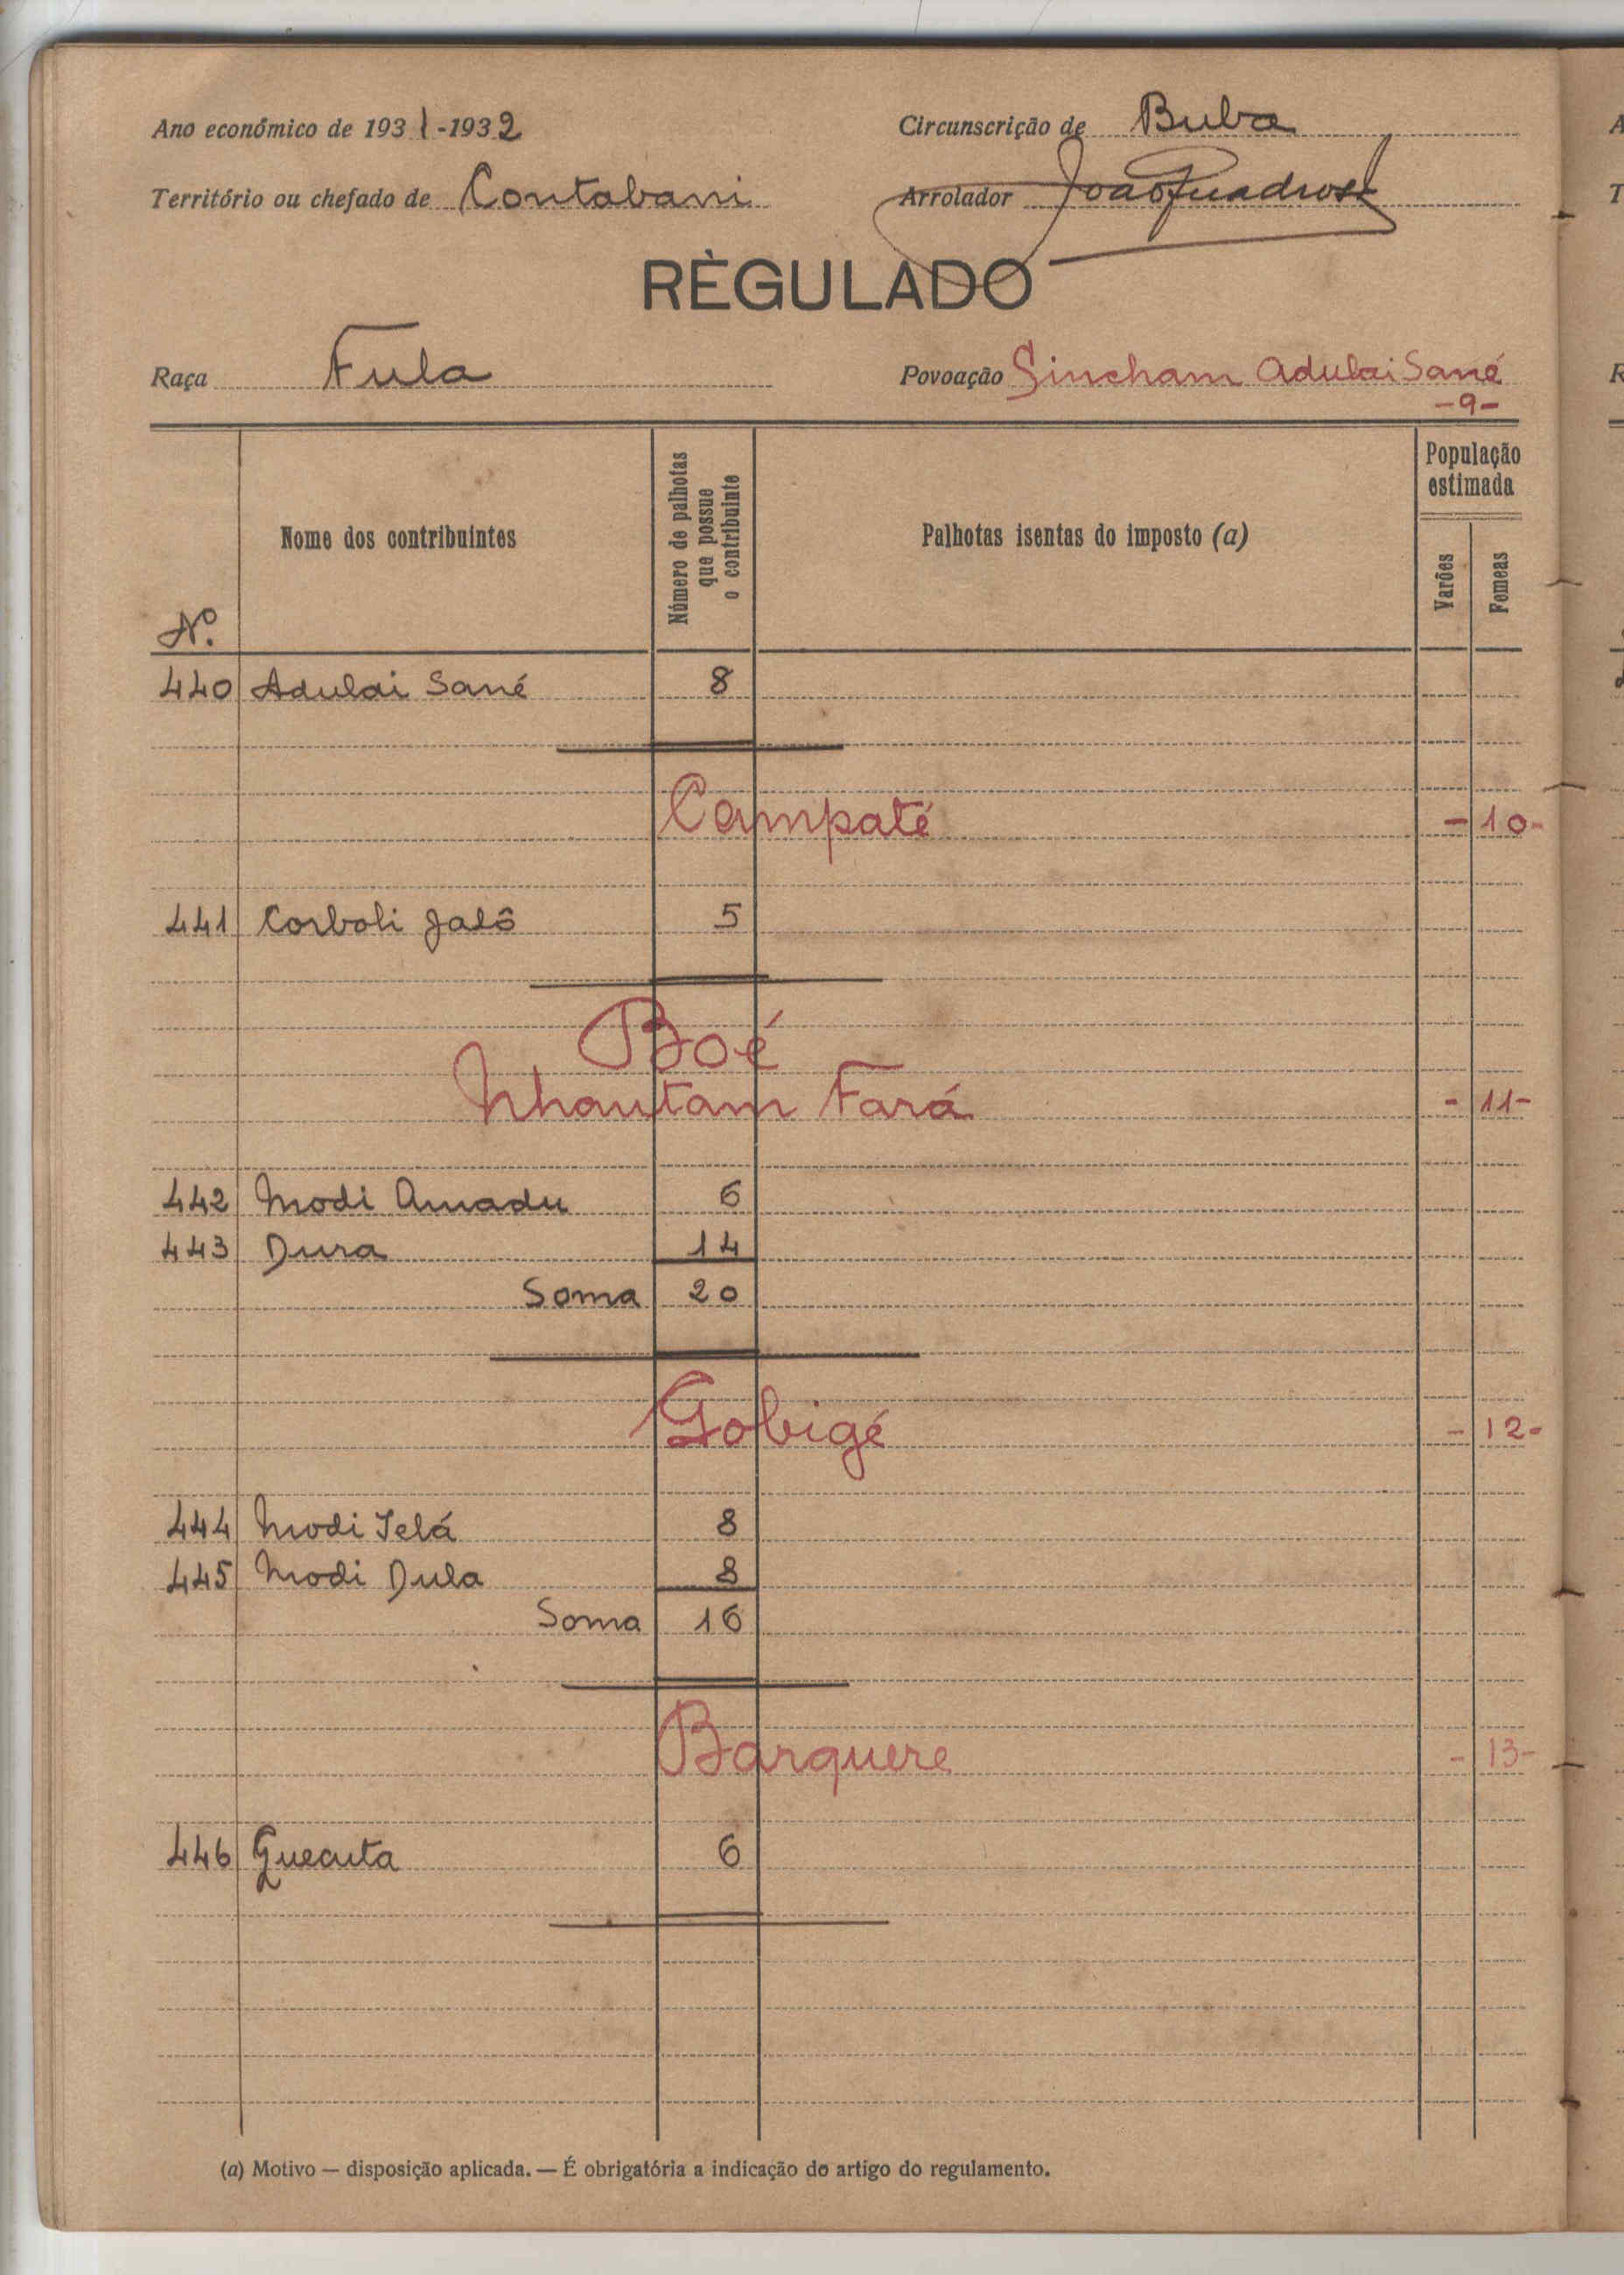 Ano económico de 1931-1932 Circunscrição de Buba
Território ou chefado de Contabani Arrolador João Quadros
RÈGULADO
Raça Fula Povoação Sincham Adulai Sané
-9-
Nº Nome dos contribuintes Número de palhotas que possue o contribuinte Palhotas isentas do imposto (a) População estimada Varões Femeas
440 Adulai Sané 8
Campaté -10-
441 Corboli Jalô 5
Boé
Nhautam Fará -11-
442 Modi Amadu 6
443 Dura 14
Soma 20
Gobigé -12-
444 Modi Selá 8
445 Modi Dula 8
Soma 16
Barquere -13-
446 Quecuta 6
(a) Motivo — disposição aplicada. — É obrigatória a indicação do artigo do regulamento.